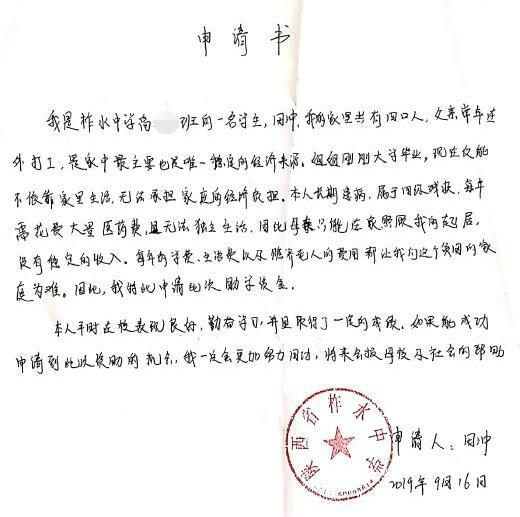 申请书
我是柞水中学高 班的一名学生,田冲,我的家里共有四口人,父亲常年在
外打工,是家中最主要也是唯一稳定的经济来源。姐姐刚刚大学毕业,现在仅能
不依靠家里生活,无法承担家庭的经济负担。本人长期患病,属于四级残疾,每年
需花费大量医药费,且无法独立生活,因此母亲只能在家照顾我的起居,
没有稳定的收入。每年的学费、生活费以及赡养老人的费用都让我们这个贫困的家
庭为难。因此,我特此申请此次助学资金。
本人平时在校表现良好,勤奋学习,并且取得了一定的成绩。如果能成功
申请到此次资助的机会,我一定会更加努力用功,将来会报母校及社会的帮助
陕西省柞水中学
申请人:田冲
2019年9月16日